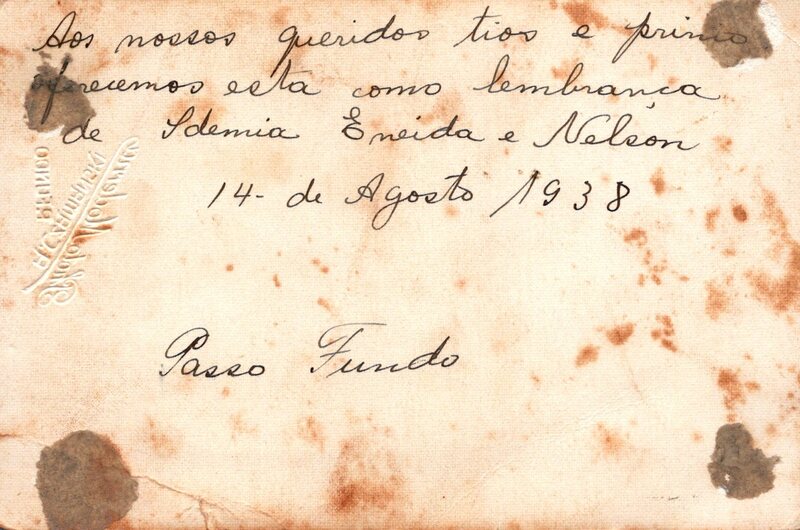 Aos nossos queridos tios e primo
oferecemos esta como lembranca
de Idemia Eneida e Nelson
14- de Agosto 1938
Passo Fundo